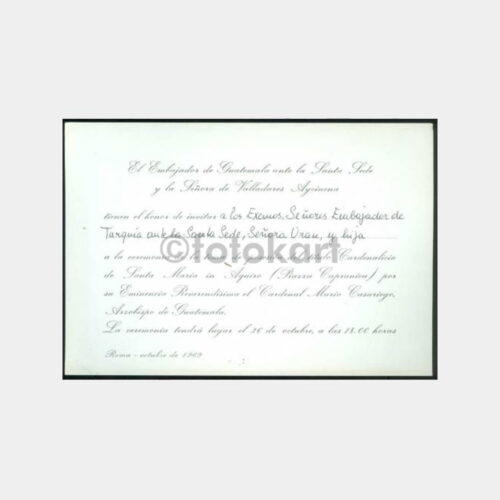 El Embajador de Guatemala ante la Santa Sede
y la Señora de Valladares Aycinena
tienen el honor de invitar a los Excmos. Señores Embajador de
Turquía ante la Santa Sede, Señora Oran, y hija
©fotokart
a la ceremonia de la toma de posesión del título Cardenalicio
de Santa María in Aquiro (Piazza Capranica) por
su Eminencia Reverendísima el Cardenal Mario Casariego,
Arzobispo de Guatemala.
La ceremonia tendrá lugar el 26 de octubre, a las 18.00 horas
Roma - octubre de 1969